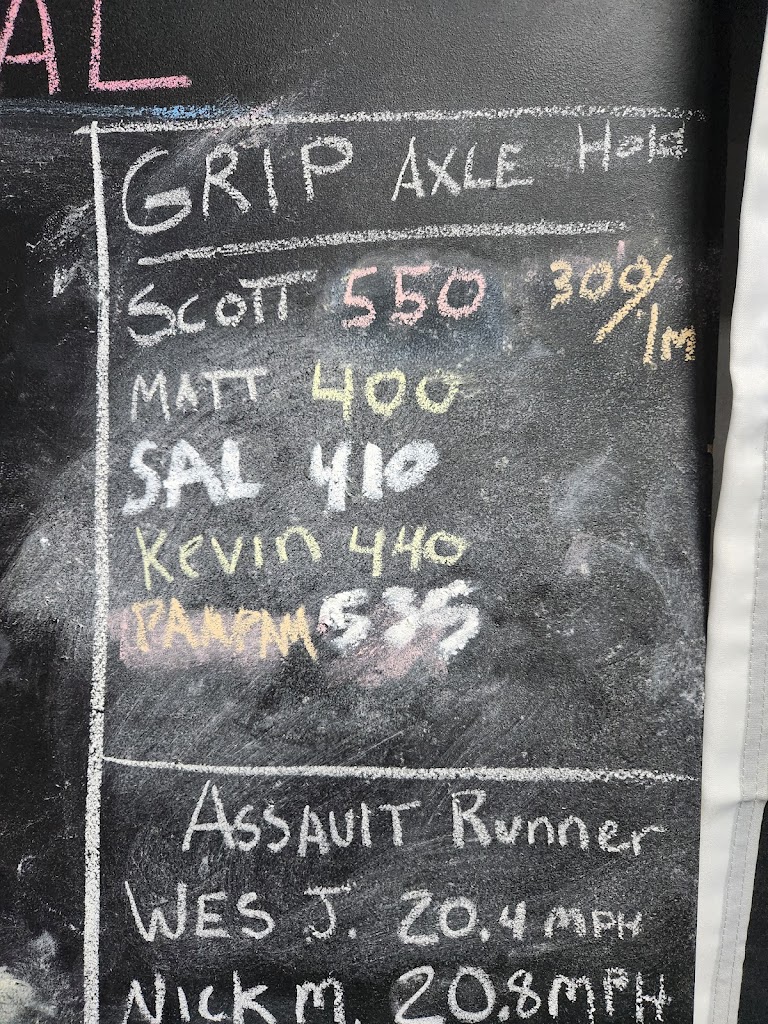 AL
GRIP AXLE Hold
SCOTT 550 300/1m
MATT 400
SAL 410
Kevin 440
PAMPAM 535
ASSAULT Runner
WES J. 20.4 MPH
NICK M. 20.8 MPH